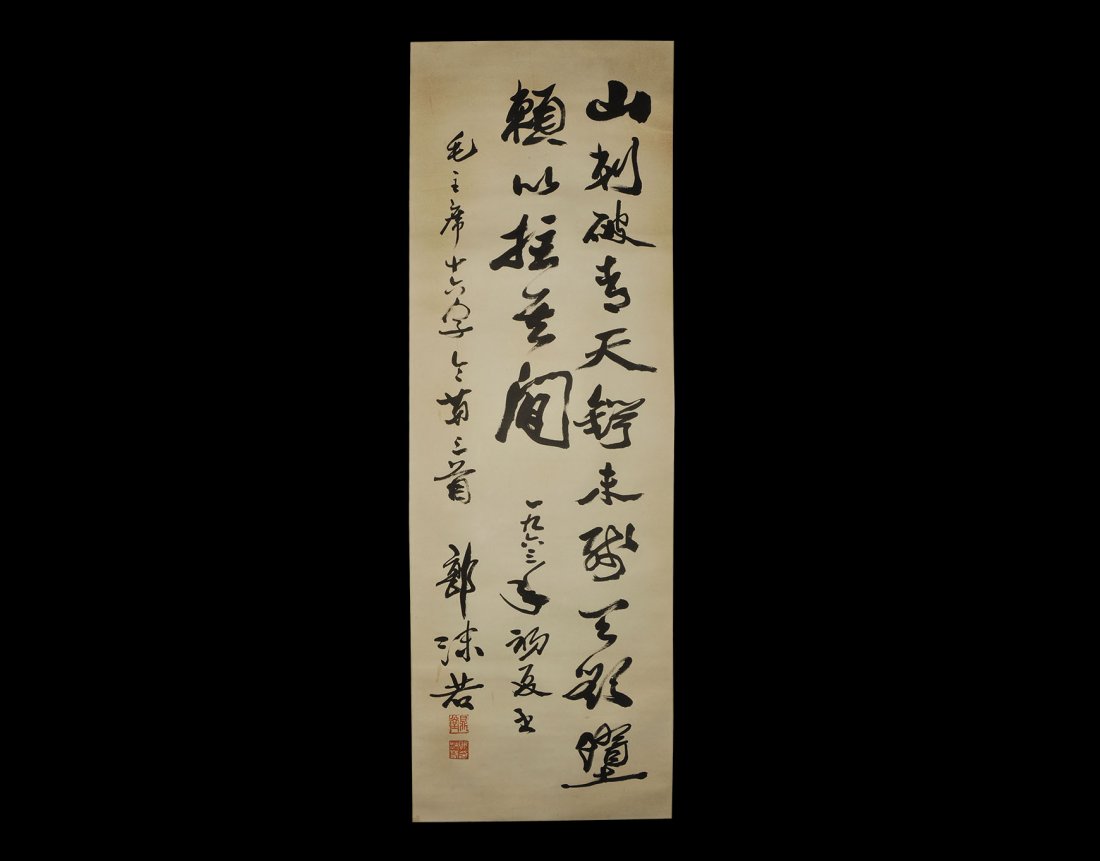 山刺破青天鍔未殘天欲墮
賴以拄其間
一九六三年初夏書
毛主席十六字令 第三首
郭沫若